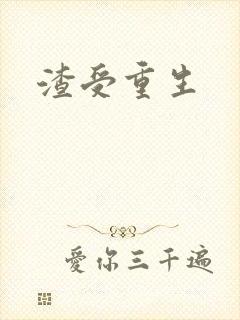 渣受重生
愛你三千遍